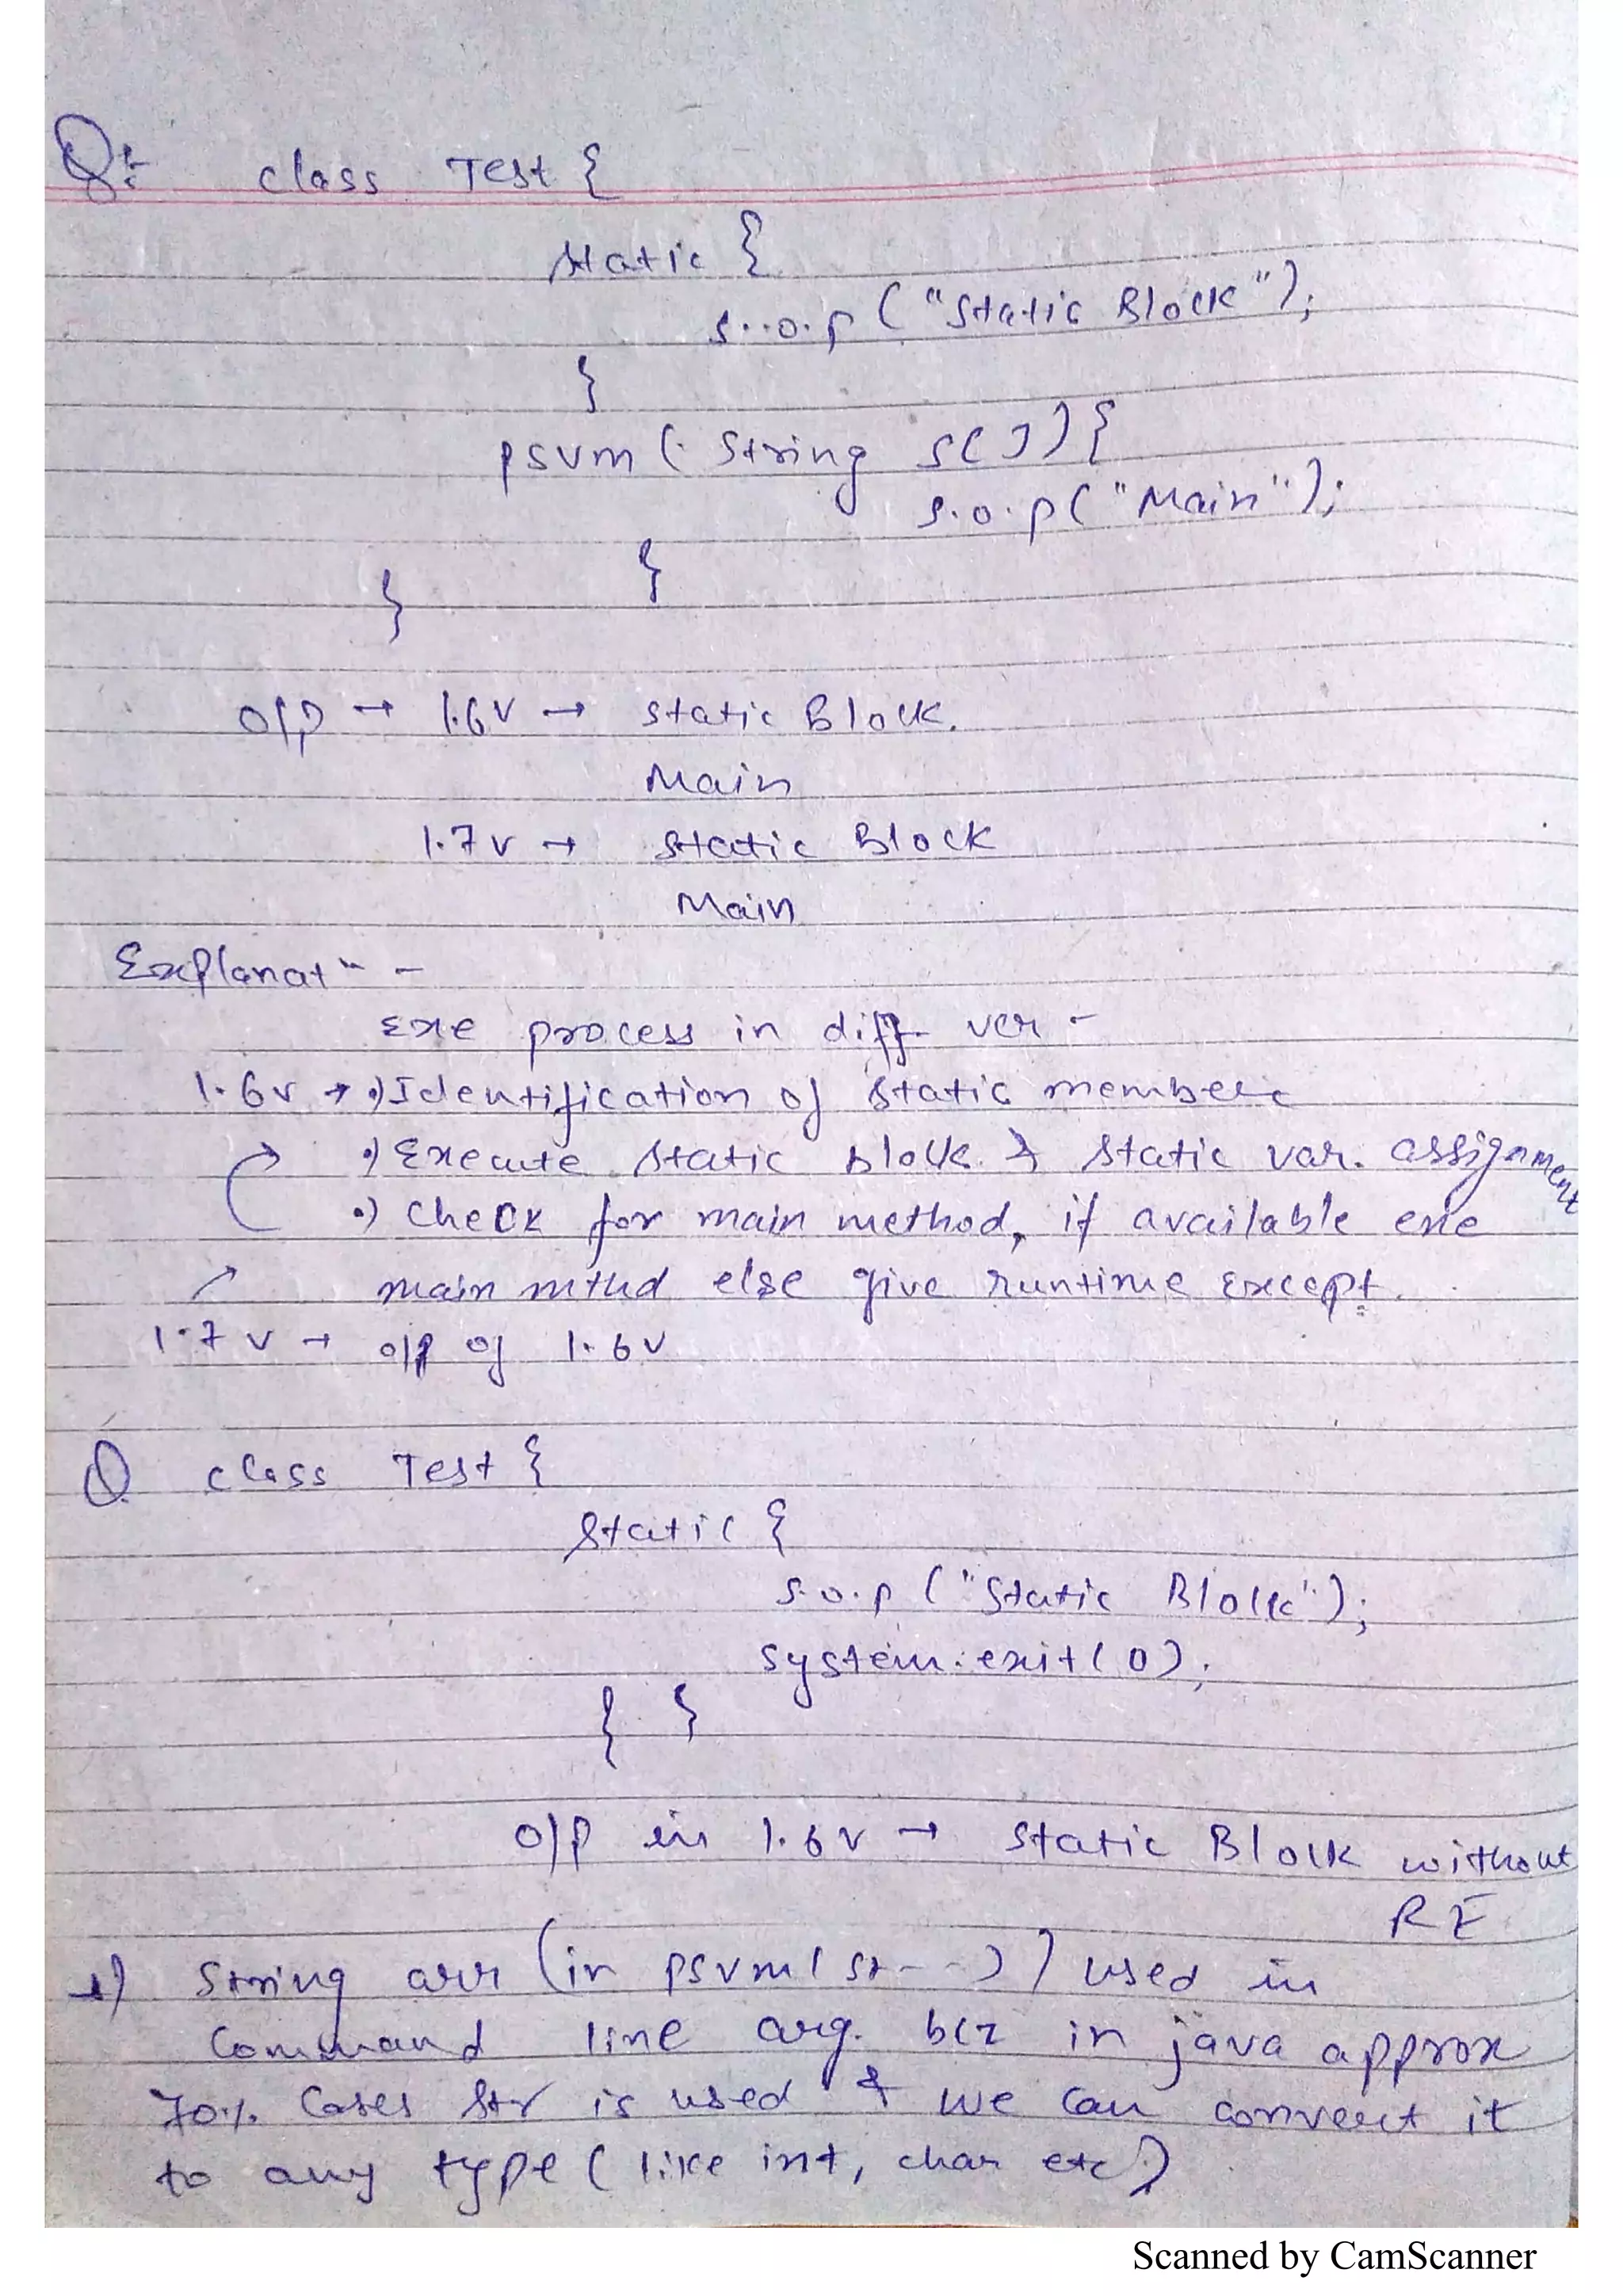 Q:- class Test {
static {
s..o.p ("Static Block");
}
psvm ( String s[]) {
s.o.p("Main");
}
}
o/p → 1.6v → static Block.
Main
1.7v → Static Block
Main
Explanatn -
Exe process in diff. ver -
1.6v → •) Identification of static members
•) Execute static block & static var. assignment
•) Check for main method, if available exe
main mthd else give runtime Except.
1.7v → o/p of 1.6v
Q class Test {
static {
s.o.p ("Static Block");
System.exit(0);
} }
o/p in 1.6v → Static Block without
RE
String arr (in psvm( st---)) used in
Command line arg. bcz in java approx
70% Cases Str is used & we can convert it
to any type ( like int, char etc)
Scanned by CamScanner